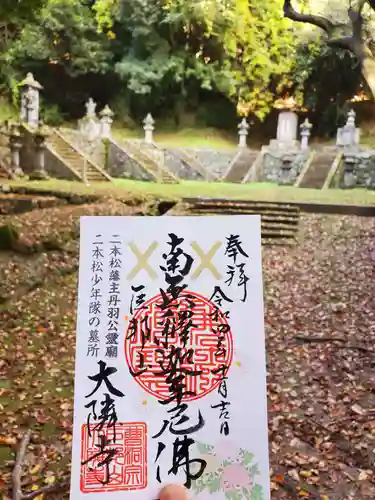 奉拝
令和四年十一月吉日
南無釋迦牟尼佛
巨邦山
二本松藩主丹羽公霊廟
二本松少年隊の墓所
大隣寺